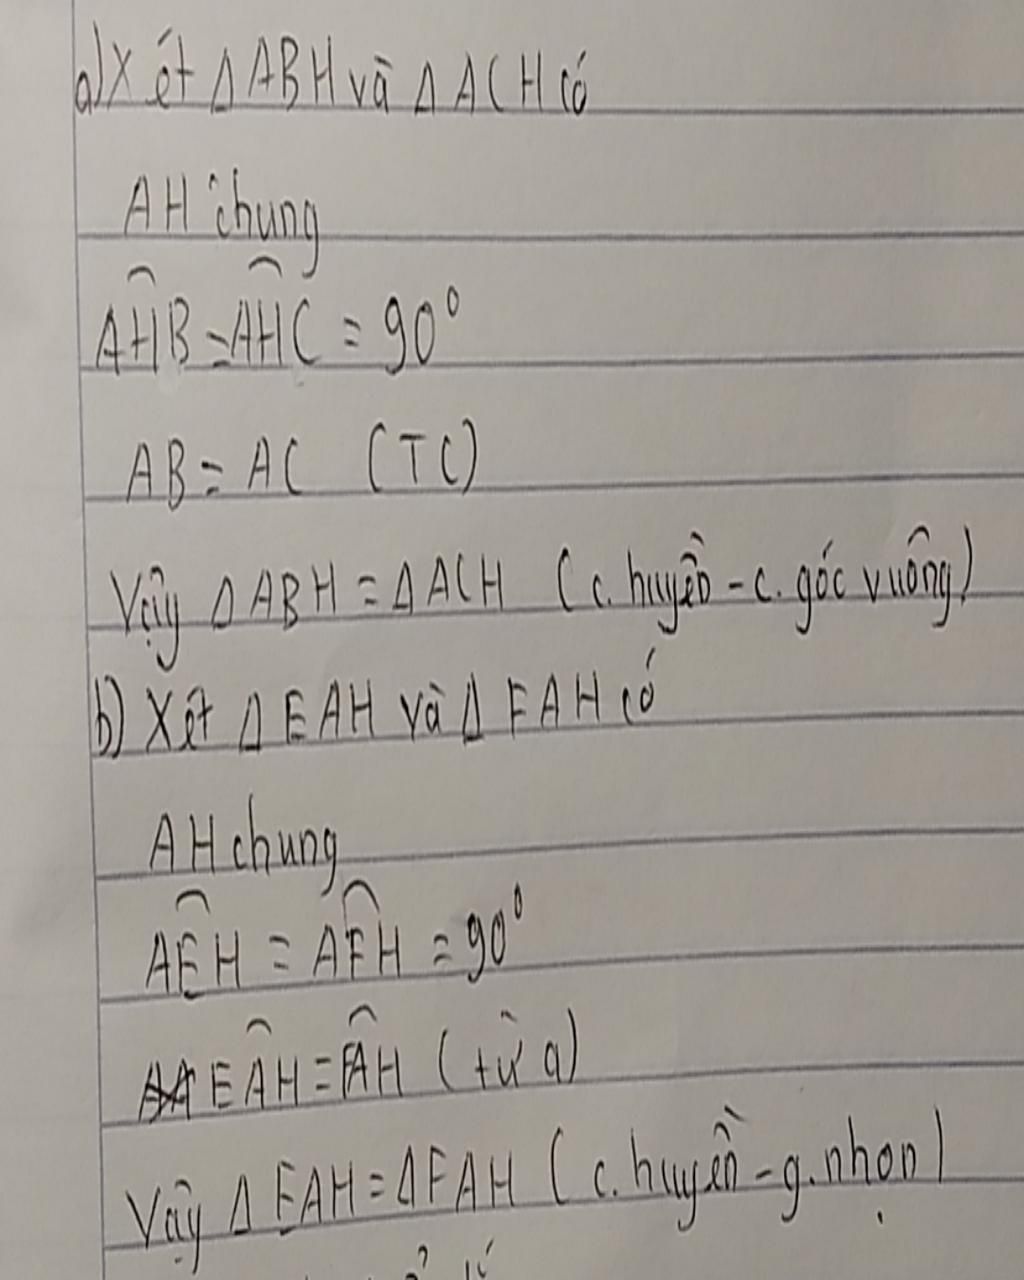 a) Xét Δ ABH và Δ ACH có
AH chung
AĤB = AĤC = 90°
AB = AC (TC)
Vậy Δ ABH = Δ ACH (c. huyền - c. góc vuông)
b) Xét Δ EAH và Δ FAH có
AH chung
AÊH = AF̂H = 90°
EÂH = FÂH (từ a)
Vậy Δ EAH = Δ FAH (c. huyền - g. nhọn)